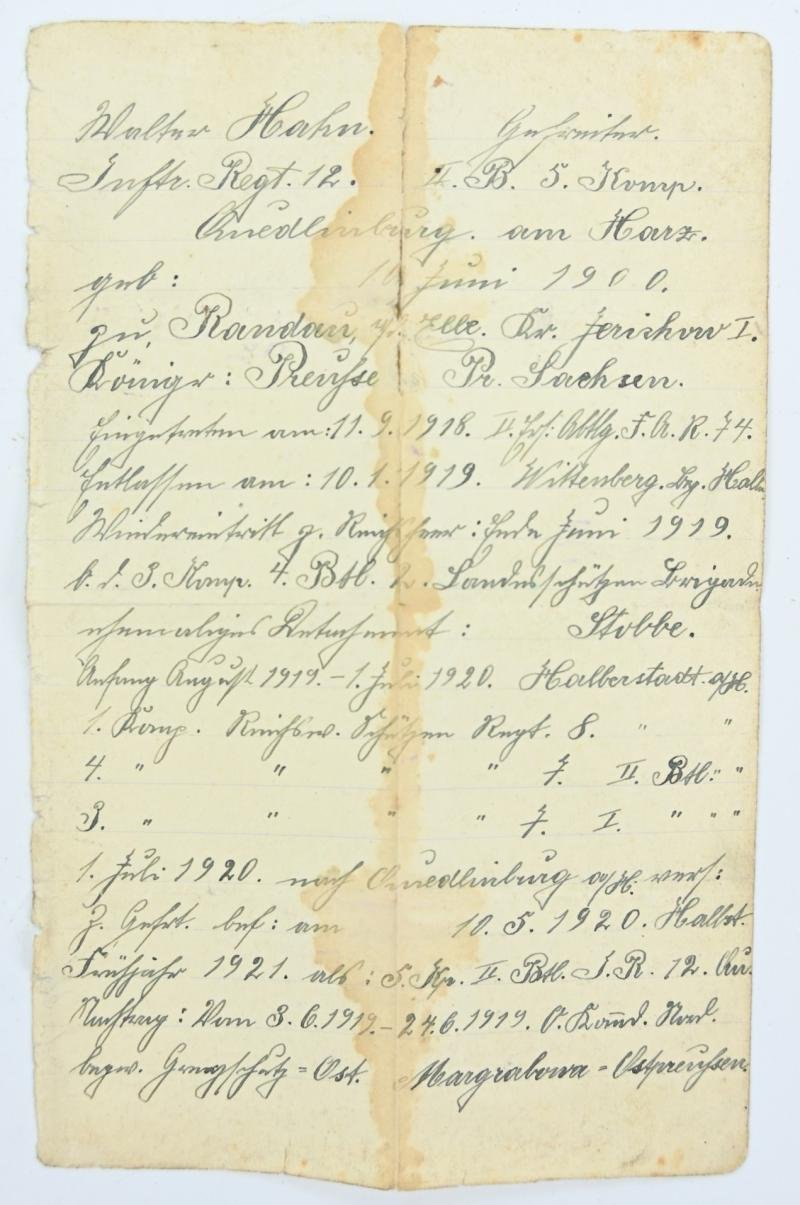 Walter Hahn. Gefreiter.
Inftr. Regt. 12. II. B. 5. Komp.
Quedlinburg. am Harz.
geb: 10 Juni 1900.
zu, Randau, Elbe. Kr. Jerichow I.
Königr: Preußse Pr. Sachsen.
Eingetreten am: 11. 9. 1918. II. Ers: Abtlg. F. A. R. 74.
Entlassen am: 10. 1. 1919. Wittenberg. Bz. Halle
Wiedereintritt z. Reichsheer: Ende Juni 1919.
b. d. 3. Komp. 4. Btl. 2. Landesschützen Brigade
ehemaliges Detachement: Stobbe.
Anfang August 1919. – 1. Juli 1920. Halberstadt. a/H.
1. Komp. Reichsw. Schützen Regt. 8. " "
4. " " " " 7. II. Btl: " "
3. " " " " 7. I. " " "
1. Juli 1920. nach Quedlinburg a/H. vers:
z. Gefrt. bef: am 10. 5. 1920. Halbst.
Frühjahr 1921. als: 5. Kp. II. Btl. I. R. 12. Qu.
Nachtrag: Vom 3. 6. 1919. – 24. 6. 1919. O. Komd. Nord.
bezw. Grenzschutz = Ost. Margrabowa = Ostpreußen.